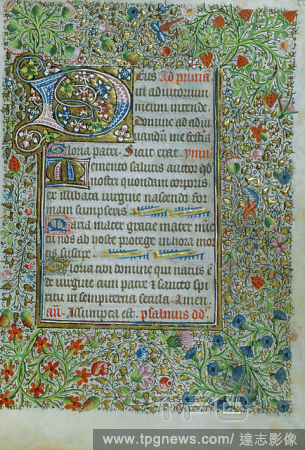 Deus Ad primā
in adiutorium
meum intende
Domine ad adiu
uandū me festia
Gloria patri. Sicut erat. ymn⁹
Memento salutis auctor qd̓
nostri quondam corporis
ex illibata uirgine nascendo for
mam sumpseris
Maria mater gracie mater mīe
tu nos ab hoste protege in hora mor
tis suscipe
Gloria tibi domine qui natus es
de uirgine cum patre et sancto spi
ritu in sempiterna secula. Amen.
añ. Assumpta est. psalmus dd̓.
www.tpgnews.com/ 達志影像